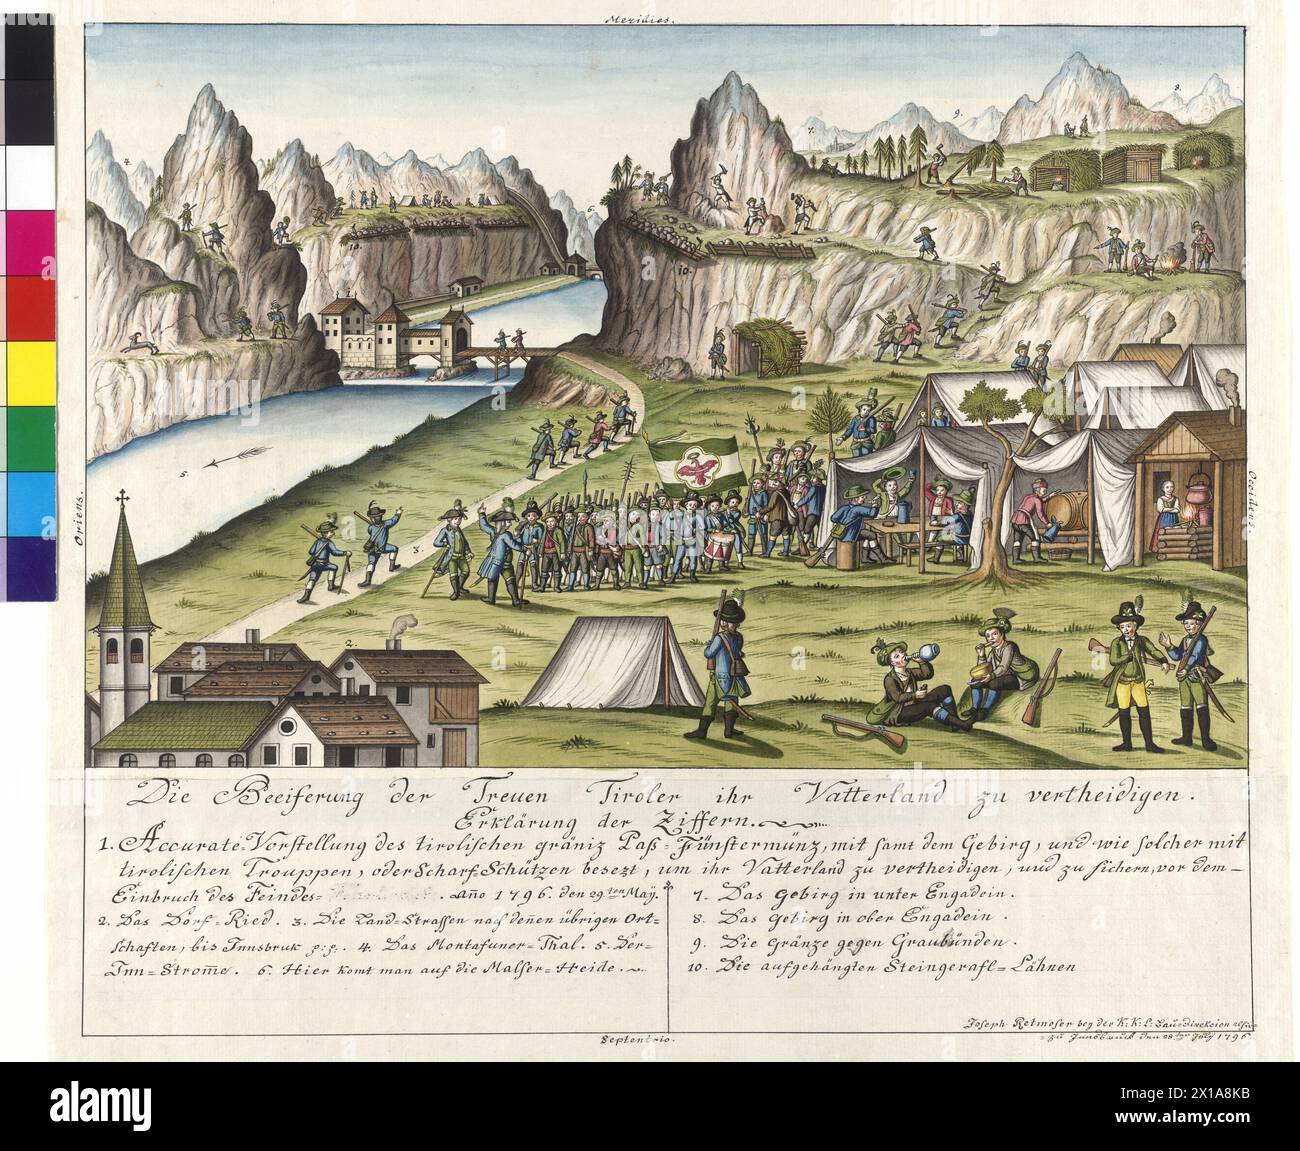 Meridies.
Oriens.
Occidens.
Die Beeiferung der Treuen Tiroler ihr Vatterland zu vertheidigen.
Erklärung der Ziffern.
1. Accurate=Vorstellung des tirolischen gräniz Paß=Fünstermünz, mit samt dem Gebirg, und wie solcher mit
tirolischen Trouppen, oder Scharf Schützen besezt, um ihr Vatterland zu vertheidigen, und zu sichern, vor dem
Einbruch des Feindes= Año 1796. den 29.ten Maÿ.
2. Das Dorf=Ried. 3. Die Land=Strassen nach denen übrigen Ort-
schaften, bis Innsbruk p:p. 4. Das Montafuner=Thal. 5. Der
Inn=Strom̄e. 6. Hier komt man auf die Malser=Heide.
7. Das Gebirg in unter Engadein.
8. Das Gebirg in ober Engadein.
9. Die Gränze gegen Graubünden.
10. Die aufgehängten Steingerafl=Lähnen
Joseph Retmoser beÿ der K:K:L: Baudirekcion
zu Innsbruck den 28.ten Julÿ 1796.
Septentrio.
4.
5.
1.
10.
6.
10.
7.
9.
8.
3.
2.
alamy
Image ID: 2X1A8KB
www.alamy.com